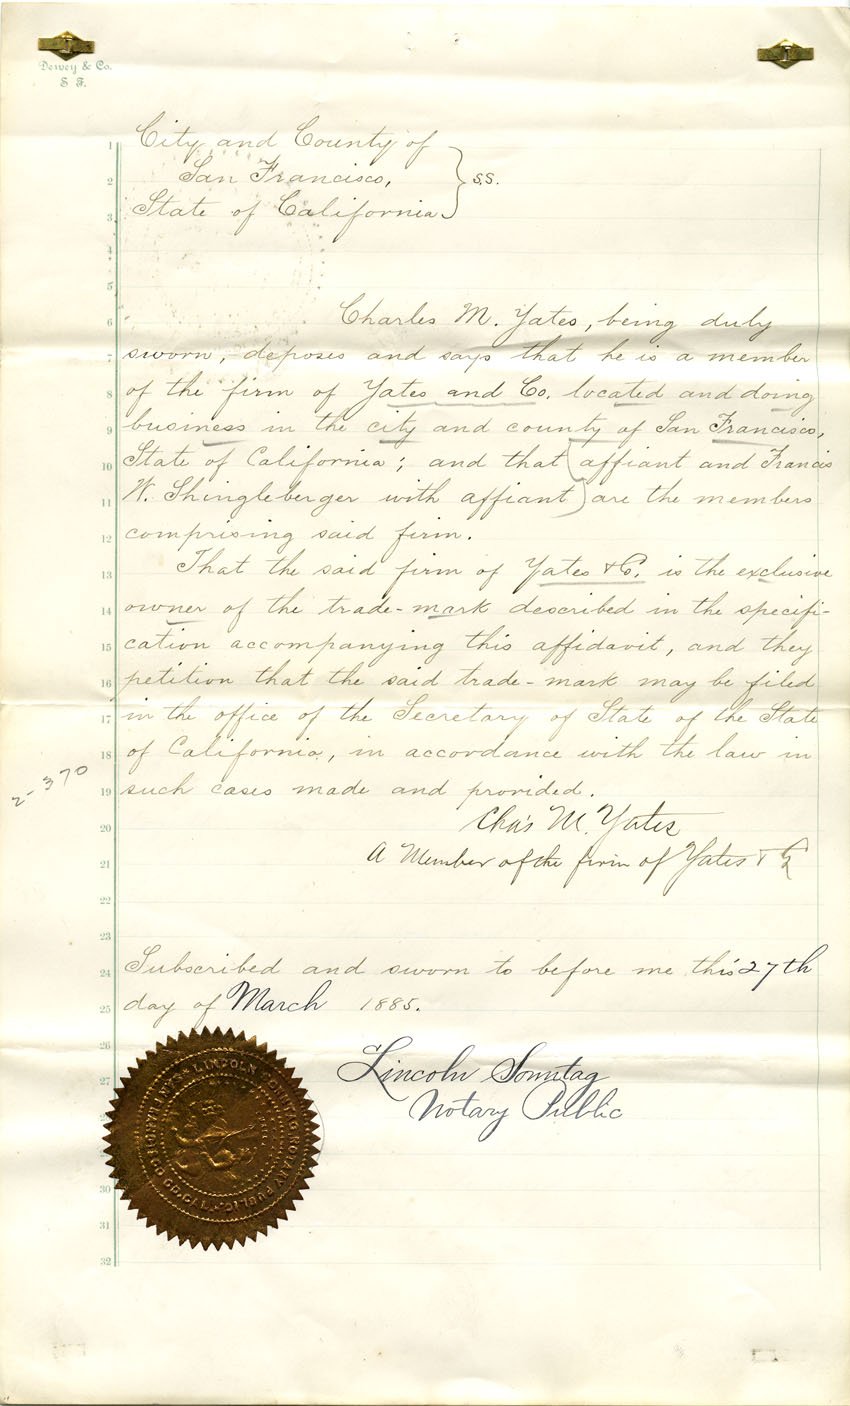 Dewey & Co.
S. F.
City and County of
San Francisco, } s.s.
State of California
1
2
3
4
5
6
7
8
9
10
11
12
13
14
15
16
17
18
19
20
21
22
23
24
25
26
27
30
31
32
Charles M. Yates, being duly
sworn, deposes and says that he is a member
of the firm of Yates and Co. located and doing
business in the city and county of San Francisco,
State of California; and that (affiant and Francis
W. Shingleberger with affiant) are the members
comprising said firm.
That the said firm of Yates & Co. is the exclusive
owner of the trade-mark described in the specifi-
cation accompanying this affidavit, and they
petition that the said trade-mark may be filed
in the office of the Secretary of State of the State
of California, in accordance with the law in
such cases made and provided.
2-370
Cha's M. Yates
A Member of the firm of Yates & Co
Subscribed and sworn to before me this 27th
day of March 1885.
Lincoln Sonntag
Notary Public
LINCOLN SONNTAG NOTARY PUBLIC SAN FRANCISCO CO. CAL.